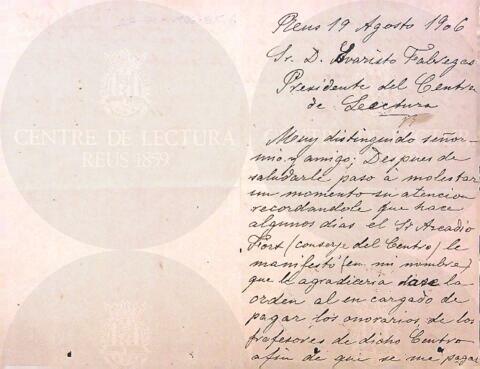 Reus 19 Agosto 1906
Sr. D. Evaristo Fabregas
Presidente del Centro
de Lectura
CENTRE DE LECTURA
REUS 1859
Muy distinguido señor
mio y amigo; Despues de
saludarle paso á molestar
un momento su atencion
recordandole que hace
algunos dias el Sr Arcadio
Fort (conserje del Centro) le
manifestó (en mi nombre)
que le agradiceria dase la
orden al en cargado de
pagar los onorarios de los
profesores de dicho Centro
afin de que se me pagar